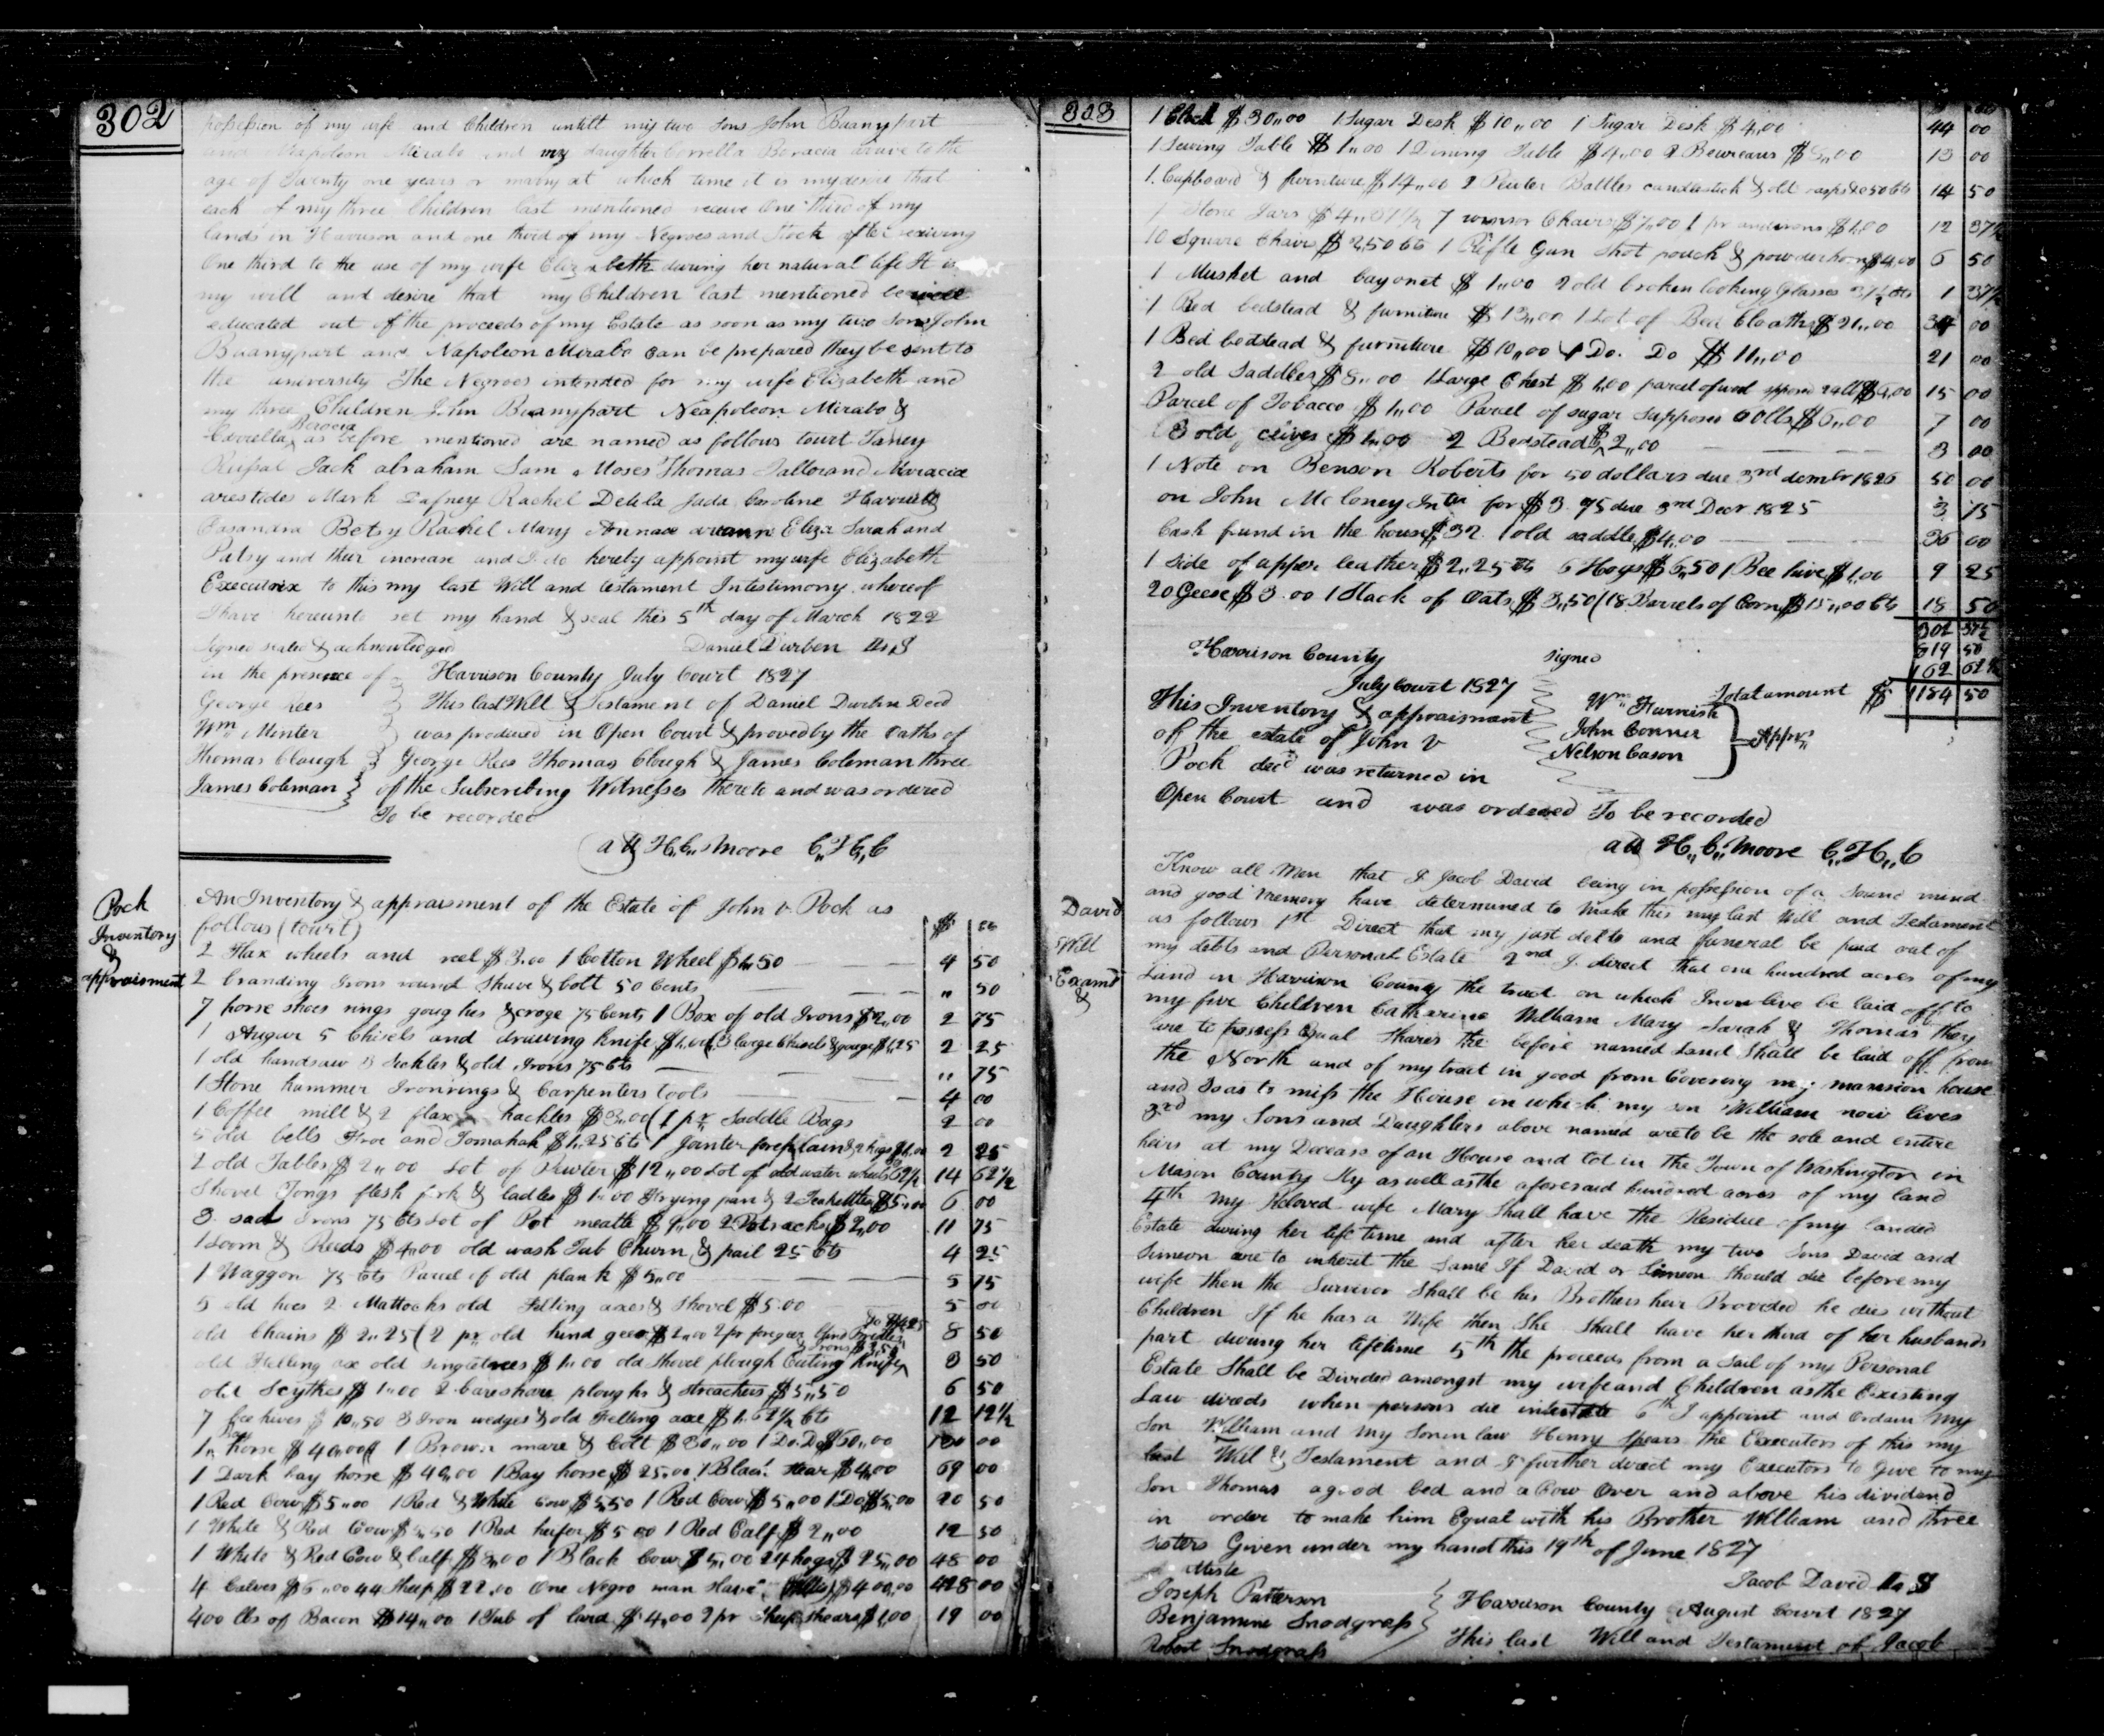 302
possession of my wife and Children untill my two Sons John Buanypart
and Neapoleon Mirabo and my daughter Corrella Boracia arave to the
age of Twenty one years or marry at which time it is my desire that
each of my three Children last mentioned receive One third of my
lands in Harrison and one third of my Negroes and Stock after receiving
One third to the use of my wife Elizabeth during her natural life It is
my will and desire that my Children last mentioned be well
educated out of the proceeds of my Estate as soon as my two Sons John
Buanypart and Napoleon Mirabo can be prepared they be sent to
the university The Negroes intended for my wife Elizabeth and
my three Children John Buanypart Neapoleon Mirabo &
Corrella Boracia as before mentioned are named as follows towit
Jack abraham Sam Moses Thomas
arestides Mark Dafney Rachel Delila Juda Caroline Harriett
Casandra Betsy Rachel Mary Eliza Sarah and
Patsy and their increase and I do hereby appoint my wife Elizabeth
Executrix to this my last Will and testament Intestimony whereof
I have hereunto set my hand & seal this 5th day of March 1822
Signed sealed & acknowledged Daniel Durben
in the presence of Harrison County July Court 1827
George Rees This last Will & Testament of Daniel Durbin Decd
Wm Minter was produced in Open Court & proved by the Oaths of
Thomas Clough George Rees Thomas Clough & James Coleman three
James Coleman of the Subscribing Witnesses thereto and was ordered
To be recorded
att H,,C,, Moore C,,H,,C
Pock
Inventory
&
appraisment
An Inventory & appraisment of the Estate of John v Pock as
follows (towit) $
2 Flax wheels and reel $3.00 1 Cotton Wheel $1,,50 4 50
2 branding Irons round Shave & bolt 50 Cents ,, 50
7 horse shoes rings goughes & croze 75 Cents 1 Box of old Irons $2,,00 2 75
1 Augur 5 Chisels and drawing Knife 3 large Chisels & gouge $1,25 2 25
1 old handsaw 3 Seckles & old Irons 75 Cts ,, 75
1 Stone hammer Iron rings & Carpenters tools 4 00
1 Coffee mill & 2 flax hackles $3,00 (1 pr Saddle Bags 2 00
5 old bells Froe and Tomahak $1,,25 Cts 1 Jointer 2 25
2 old Tables $2,,00 Lot of Pewter $12,,00 Lot of old water 62½ 14 62½
Shovel Tongs flesh fork & ladles $1,,00 Frying pan & 2 Teakettles $5,,00 6 00
3 sad Irons 75 Cts Lot of Pot meatle $9,,00 2 Pot racks $2,00 11 75
1 Loom & Reeds $4,00 old wash Tub Churn & pail 25 Cts 4 25
1 Waggon 75 Cts Parcel of old plank $5,,00 5 75
5 old hoes 2 Mattocks old Felling axes & Shovel $5.00 5 00
old Chains $2,,25 (2 pr old hind geer $2,,00 2 pr foregeer blind Bridles $4,25 8 50
old Felling axe old singletrees $1,,00 old Shovel plough Cuting Knife & Irons 3 50
old Scythes $1,,00 2 bareshare ploughs & streachers $5,,50 6 50
7 bee hives $10,,50 3 Iron wedges & old Felling axe $1,,62½ Cts 12 12½
1 Bay horse $40,,00 1 Brown mare & Colt $30,,00 1 Do. Do $60,,00 130 00
1 Dark bay horse $40,,00 1 Bay horse $25,,00 1 Black stear $4,,00 69 00
1 Red Cow $5,,00 1 Red & White Cow $5,50 1 Red Cow $5,,00 1 Do $5,,00 20 50
1 White & Red Cow $5,50 1 Red heifer $5 00 1 Red Calf $2,,00 12 50
1 White & Red Cow & Calf $8,,00 1 Black Cow $5,,00 24 hogs $25,,00 48 00
4 Calves $6,,00 44 Sheep $22,00 One Negro man slave $400,,00 428 00
400 lbs of Bacon $14,,00 1 Tub of lard $4,00 2 pr Sheep shears $1,00 19 00
303
1 Clock $30,,00 1 Sugar Desk $10,,00 1 Sugar Desk $4,00 44 00
1 Sewing Table $1,,00 1 Dining Table $4,,00 2 Beureaus $8,,00 13 00
1 Cupboard & furniture $14,,00 2 Peuter Bottles candlestick & old 50 Cts 14 50
Stone Jars $4,,37½ 7 winsor Chairs $7,,00 1 pr andirons $1,00 12 37½
10 Square Chairs $2,50 Cts 1 Rifle Gun Shot pouch & powderhorn $4,00 6 50
1 Musket and bayonet $1,,00 2 old broken looking Glasses 37½ Cts 1 37½
1 Bed bedstead & furniture $13,,00 1 Lot of Bed Cloaths $21,,00 34 00
1 Bed bedstead & furniture $10,,00 1 Do. Do $11,,00 21 00
2 old Saddles $8,,00 1 Large Chest $1,00 parcel of wool $6,00 15 00
Parcel of Tobacco $1,,00 Parcel of sugar supposed 60 lbs $6,,00 7 00
3 old ceives $1,,00 2 Bedsteads $2,,00 3 00
1 Note on Benson Roberts for 50 dollars due 3rd 1826 50 00
on John McLoney for $3 75 due 3rd Decr 1825 3 75
Cash found in the house $32 1 old saddle $4,00 36 00
1 side of apper leather $2,,25 Cts 6 Hogs $6,,50 1 Bee hive $1,00 9 25
20 Geese $3.00 1 Stack of Oats $3,,50 (18 Barrels of Corn $15,,00 Cts 18 50
302 37½
819 50
162 62½
Total amount $ 1184 50
Harrison County Signed
July Court 1827
Wm Furnish
This Inventory & appraisment John Conner Apprs
of the estate of John V Nelson Cason
Pock decd was returned in
Open Court and was ordered To be recorded
att H,,C,, Moore C,,H,,C
David
Will
Examd
&
Know all Men that I Jacob David being in possession of a Sound mind
and good memory have determined to make this my last Will and Testament
as follows 1st Direct that my just debts and funeral be paid out of
my debts and Personal Estate 2nd I direct that one hundred acres of my
Land in Harrison County the tract on which I now live be laid off to
my five Children Catharine William Mary Sarah & Thomas they
are to possess Equal Shares the before named Land Shall be laid off from
the North end of my tract in good from Covering my mansion house
and so as to miss the House in which my son William now lives
3rd my Sons and Daughters above named are to be the sole and entire
heirs at my Decease of an House and Lot in the Town of Washington in
Mason County Ky as well as the aforesaid hundred acres of my land
4th My Beloved wife Mary Shall have the Residue of my landed
Estate during her life time and after her death my two Sons David and
Simeon are to inherit the Same If David or Simeon should die before my
wife then the Survivor Shall be his Brothers heir Provided he dies without
Children If he has a Wife then She Shall have her third of her husbands
part during her lifetime 5th the proceeds from a Sail of my Personal
Estate Shall be Divided amongst my wife and Children as the Existing
Law directs when persons die intestate 6th I appoint and Ordain my
Son William and my Son in law Henry Spears the Executors of this my
last Will & Testament and I further direct my Executors to Give to my
Son Thomas a good bed and a Cow Over and above his dividend
in order to make him Equal with his Brother William and three
Sisters Given under my hand this 19th of June 1827
Jacob David
Joseph Patterson Harrison County August Court 1827
Benjamine Snodgrass This last Will and Testament of Jacob
Robert Snodgrass